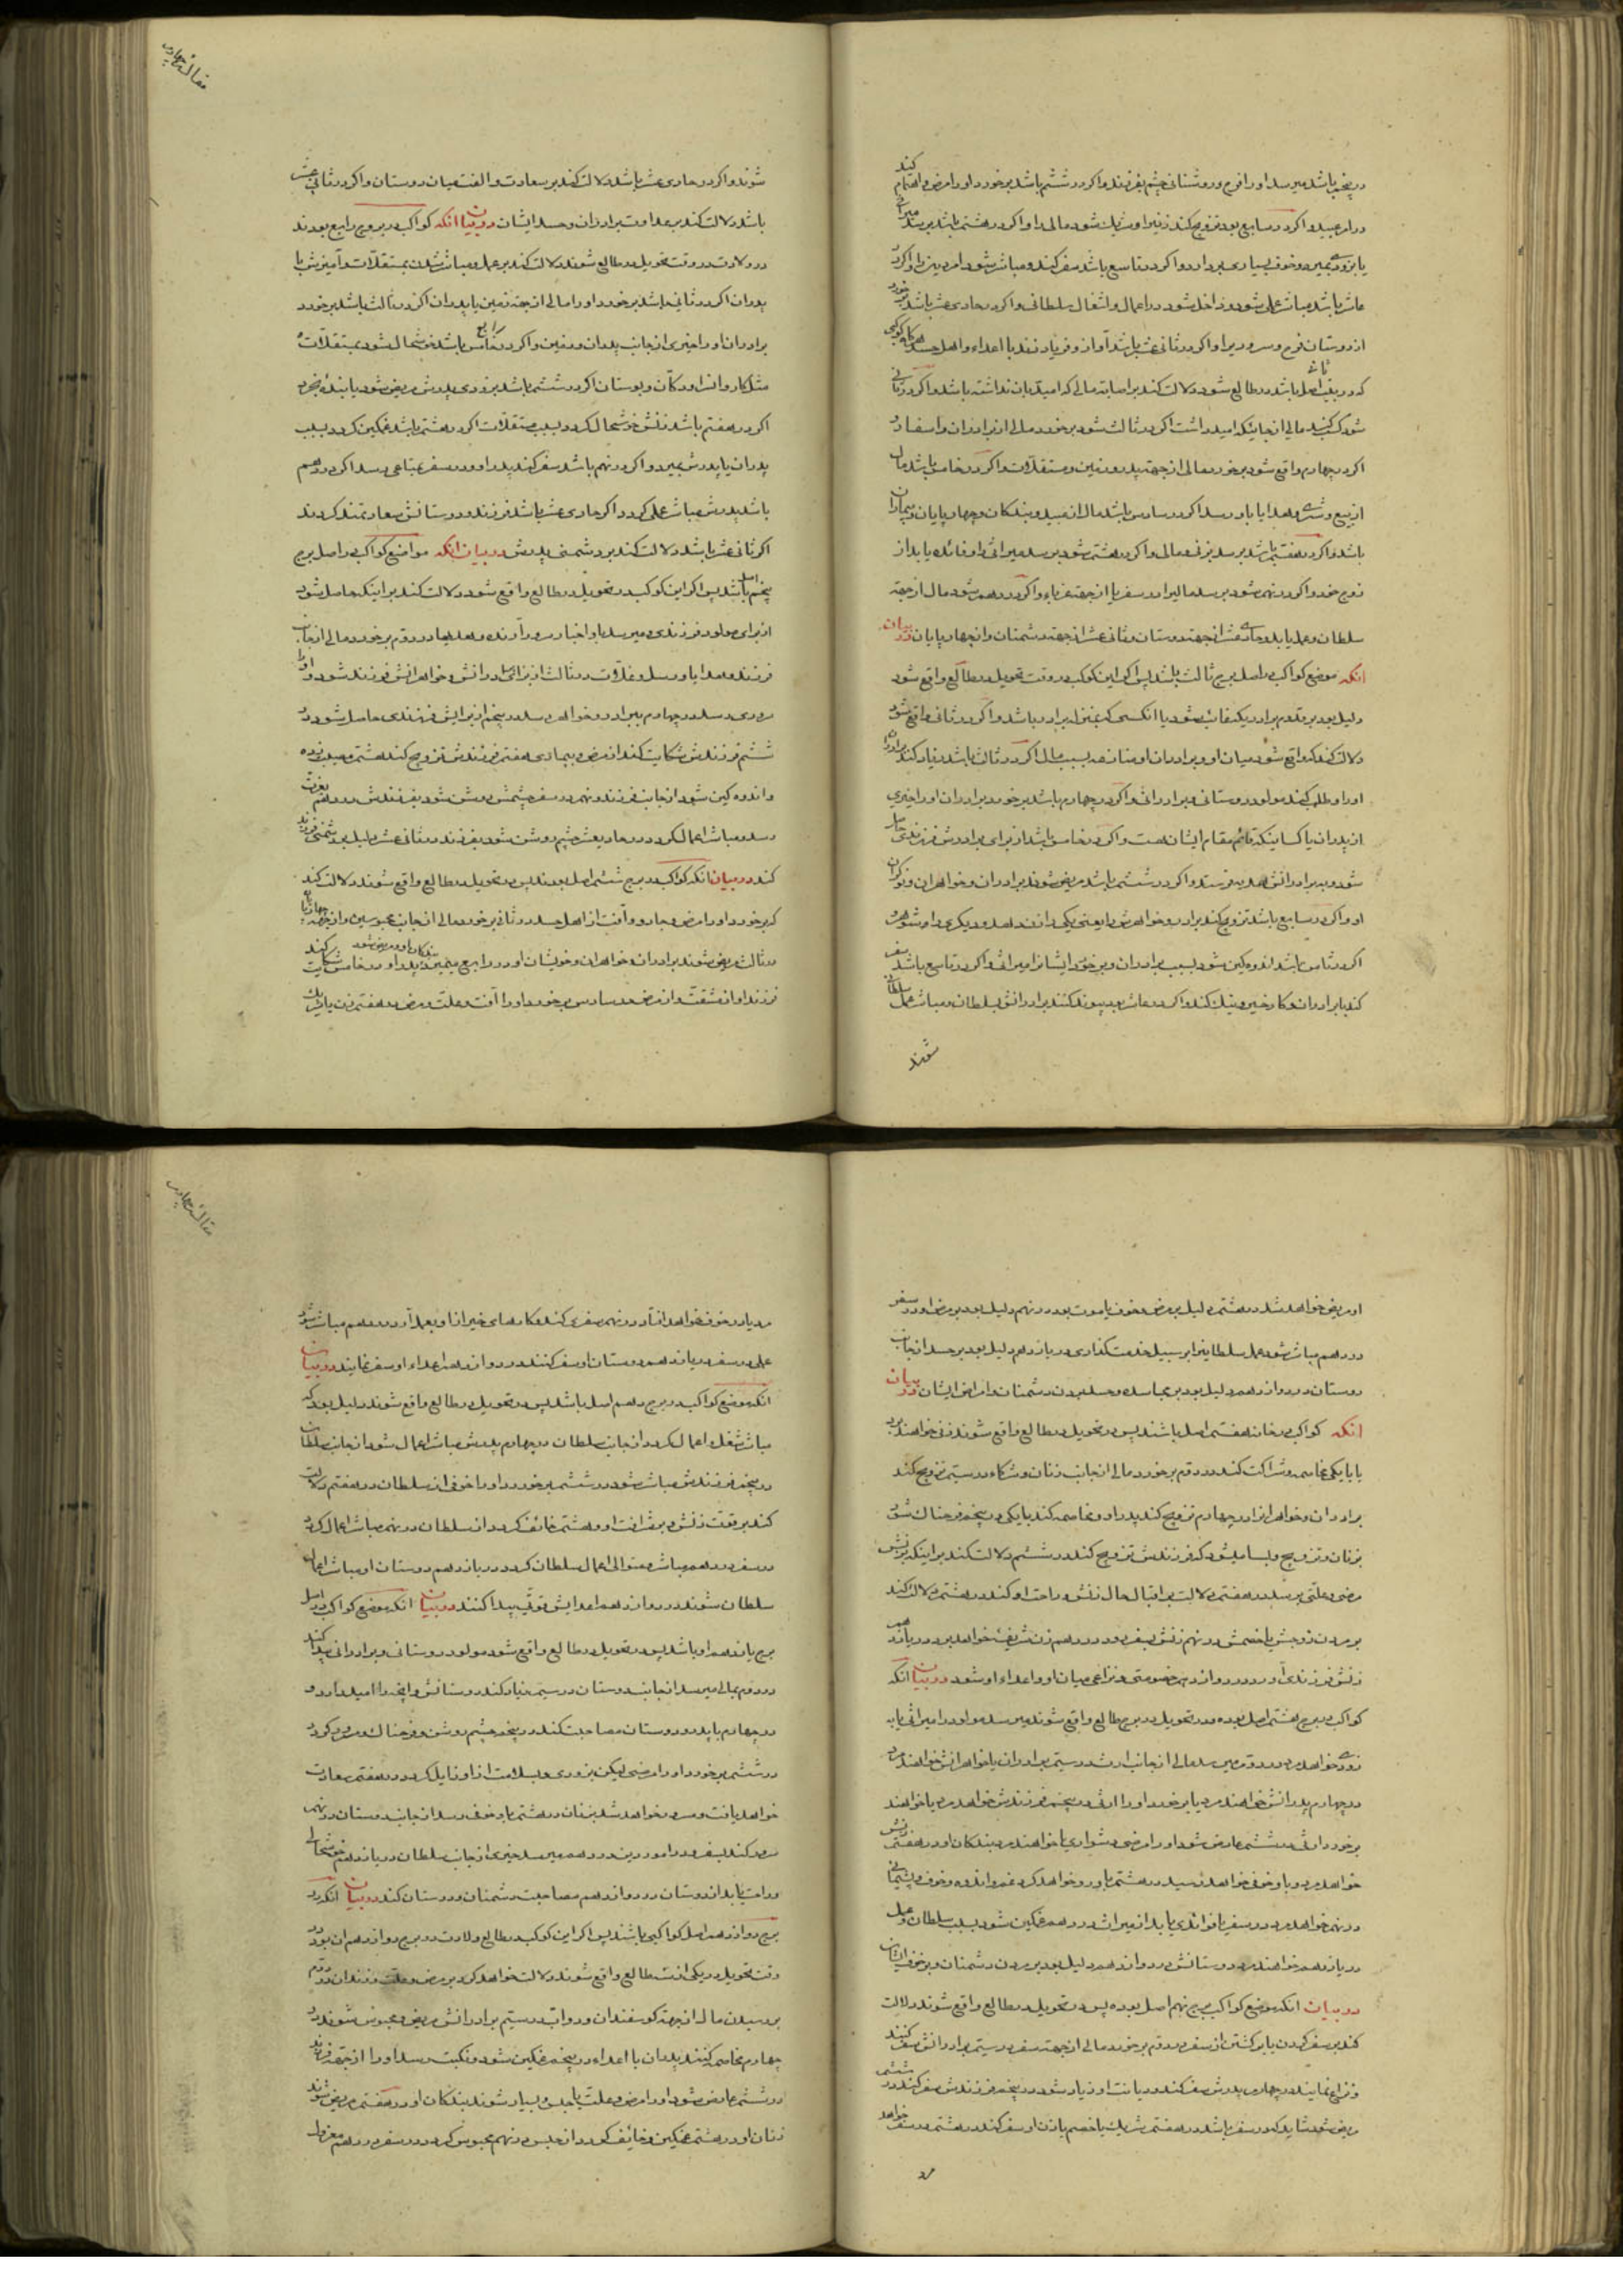 در پنجم باشد میرسد او را فرح و روشنائی چشم بفرزند و اکر در ششم باشد برخورد او را مرض و اهتمام کند
در امر عبید و اکر در سابع بود تزویج کند زنیرا و شریك شود مالی را و اکر در هشتم باشد برسد میراثی
یا بزودی بمیرد و خوف بسیاری برد او را و اکر در تاسع باشد سفر کند و مباشر شود امر دین را و اکر در
عاشر باشد مباشر عملی شود و داخل شود در اعمال و اشغال سلطانی و اکر در حادی عشر باشد برخورد
از دوستان فرح و سرور برد او را و اکر در ثانی عشر باشد آواز و فریاد زند با اعداء و اهل حسد هرکاه کوکبی
که در بیت ثانی اصل باشد در طالع شود دلالت کند بر اصابه مالی که امید بان نداشته باشد و اکر در ثانی
شود کسب کند مالی از جائیکه امید داشت اکر در ثالث شود برخورد مالی از برادران و اسفار و
اکر در چهارم واقع شود برخورد مالی از جهة پدر و زمین و مستقلات و اکر در خامس باشد مال
از بیع و شری و هدایا باو رسد اکر در سادس باشد مال از عبید و بندکان و چهارپایان و بیماران
باشد و اکر در هفتم باشد برسد بزنی و مالی و اکر در هشتم شود برسد میراثی او فائده یابد از
زوج خود و اکر در نهم شود برسد مالیرا در سفر یا از جهة غرباء و اکر در دهم شود مال از جهة
سلطان و عمل یابد و حادی عشر از جهة دوستان و ثانی عشر از جهة دشمنان و از چهارپایان در بیان
انکه موضع کواکب در اصل برج ثالث باشد پس اکر این کوکب در وقت تحویل در طالع واقع شود
دلیل بود بر قدوم برادر یکه غائب شود یا انکسی که بمنزله برادر باشد و اکر در ثانی واقع شود
دلالت کند که واقع شود میان او و برادران او منازعه بسبب مال اکر در ثالث باشد زیاد کند برادران
او را و طلب کند مولود دوستانی و برادرانی و اکر در چهارم باشد برخورد برادران او را خیری
از پدران یا کسانیکه قائم مقام ایشان هست و اکر در خامس باشد از برای برادرش فرزندی حاصل
شود و به برادرانش هدیه فرستد و اکر در ششم باشد مریض شوند برادران و خواهران و نوکران
او و اکر در سابع باشد تزویج کند برادر و خواهرش را یعنی یکیرا زن دهد و دیکری را شوهر
اکر در ثامن باشد اندوهکین شود بسبب برادران و برخورد ایشانرا میراثی و اکر در تاسع باشد سفر
کند با برادران و کار خیر و نیك کند و اکر در عاشر بود پیوند کنند برادرانش بسلطان و مباشر عمل سلطان
شوند
مقاله چهارم
شوند و اکر در حادی عشر باشد دلالت کند بر سعادت و الفت میان دوستان و اکر در ثانی عشر
باشد دلالت کند بر عداوت برادران و حسد ایشان در بیان انکه کواکب در برج رابع بودند
در ولادت در وقت تحویل در طالع شوند دلالت کند بر عمل و مباشر شدن بمستقلات و آمیزش با
پدران اکر در ثانی باشد برخورد او را مالی از جهة زمین یا پدران اکر در ثالث باشد برخورد
برادران او را خیری از جانب پدران و زمین و اکر در رابع خامس باشد خوشحال شود بمستقلات
مثل کاروانسرا و دکان و بوستان اکر در ششم باشد بزودی پدرش مریض شود یا بنده بخرد
اکر در هفتم باشد زنش خوشحال کردد بسبب مستقلات اکر در هشتم باشد غمکین کردد بسبب
پدران یا پدرش بمیرد و اکر در نهم باشد سفر کند پدر او و در سفر بمتاعی رسد اکر در دهم
باشد پدرش مباشر عملی کردد اکر حادی عشر باشد فرزند و دوستانش سعادتمند کردند
اکر ثانی عشر باشد دلالت کند بر دشمنی پدرش در بیان انکه مواضع کواکب در اصل برج
پنجم اصل باشد پس اکر این کوکب در تحویل در طالع واقع شود دلالت کند بر اینکه حاصل شود
از برای مولود فرزندی و میرسد باو اخبار سرور آورنده و هدیها و در دوم برخورد مالی از جانب
فرزند و هدایا و رسل و غلات در ثالث از برای برادرانش و خواهرانش فرزند شود و او را
سروری رسد در چهارم ببرادر و خواهر رسد در پنجم از برایش فرزندی حاصل شود در
ششم فرزندش شکایت کند از مرض و بیماری هفتم فرزندش تزویج کند هشتم مصیبت زده
و اندوهکین شود از جانب فرزند و نهم در سفر چشمش روشن شود بفرزندش در دهم بعزت
رسد و مباشر اعمال کردد در حادیعشر چشم روشن شود بفرزند در ثانی عشر دلیل بر دشمنی فرزند
کند در بیان انکه کواکب در برج ششم اصل بودند پس در تحویل در طالع واقع شوند دلالت کند
که برخورد او را مرض و جادو و آفت از اهل حسد در ثانی برخورد مالی از جانب محبوسین و از جهة چهارپایان
در ثالث مریض شوند برادران و خواهران و خویشان او در رابع بمیرد پدر او بندکان او و مریض شود در خامس شکایت کند
فرزند او از مشقت و از مرض در سادس برخورد او را آفت و علت و مرض در هفتم زن یا شریك
اورا مریض خواهد شد در هشتم دلیل بر مرض و خوف یا موت بود در نهم دلیل بود بر مرض او در سفر
در دهم مباشر شود عمل سلطانیرا بر سبیل خدمتکذاری در یازدهم دلیل بود بر حسد از جانب
دوستان در دوازدهم دلیل بود بر محاسده و حسد بردن دشمنان و امراض ایشان در بیان
انکه کواکب در خانه هفتم اصل باشند پس در تحویل در طالع واقع شوند زنی خواهد برد
یا با یکی مخاصمه و شراکت کند در دوم برخورد مالی از جانب زنان و شرکاء در سیم تزویج کند
برادران و خواهرانرا در چهارم تزویج کند پدر او و مخاصمه کند با یکی در پنجم فرحناك شود
بزنان و تزویج و بسا میشود که فرزندش تزویج کند در ششم دلالت کند بر اینکه بزنش
مرضی و علتی برسد در هفتم دلالت بر اقبال حال زنش و راحت او کند در هشتم دلالت کند
بر مردن زوجش یا خصمش در نهم زنش بسفر رود در دهم زن شریفه خواهد برد در یازدهم
زنش فرزندی آورد در دوازدهم خصومتی و نزاعی میان او و اعداء او شود در بیان انکه
کواکب در برج هشتم اصل بوده و در تحویل در برج طالع واقع شوند میرسد مولود را میراثی یا به
زودی خواهد مرد در دوم میرسد مالی از جانب ارث در سیم برادران یا خواهرانش خواهند مرد
در چهارم پدرانش خواهند مرد یا برخورد او را ارثی در پنجم فرزندش خواهد مرد یا خواهند
برخورد ارثی در ششم عارض شود او را مرض دشواری یا خواهند مرد بندکان او در هفتم زنش
خواهد مرد و باو خوف خواهد رسید در هشتم باو رو خواهد کرد غم و اندوه و خوف و پشیمانی
در نهم خواهد مرد در سفر یا فوائدی یابد از میراث در دهم غمکین شود بسبب سلطان و عمل
در یازدهم خواهند مرد دوستانش در دوازدهم دلیل بود بر مردن دشمنان و بر خوف ایشان
در بیان انکه موضع کواکب برج نهم اصل بوده پس در تحویل در طالع واقع شوند دلالت
کند بر سفر کردن یا برکشتن از سفر در دوم برخورد مالی از جهة سفر در سیم برادرانش سفر کنند
و نزاع نمایند در چهارم پدرش سفر کند و دیانت او زیاد شود در پنجم فرزندش سفر کند در ششم
مریض شود شاید که در سفر باشد در هفتم شریك یا خصم یا زن او سفر کند در هشتم در سفر خواهد
مرد
مقاله چهارم
مرد یا در خوف خواهد افتاد در نهم سفری کند و کارهای خیر از او بعمل آید در دهم مباشر شود
عملی در سفر در یازدهم دوستان او سفر کنند در دوازدهم اعداء او سفر نمایند در بیان
انکه موضع کواکب در برج دهم اصل باشد پس در تحویل در طالع واقع شوند دلیل بود که
مباشر شغل و اعمال کردد از جانب سلطان در چهارم پدرش مباشر اعمال شود از جانب سلطان
در پنجم فرزندش مباشر شود در ششم برخورد او را خوفی از سلطان در هفتم دلالت
کند بر قوت زنش و بر شرافت او در هشتم خائف کردد از سلطان در نهم مباشر اعمال کردد
در سفر در دهم مباشر و متوالی اعمال سلطان کردد در یازدهم دوستان او مباشر اعمال
سلطان شوند در دوازدهم اعدایش قوتی پیدا کنند در بیان انکه موضع کواکب در اصل
برج یازدهم او باشد پس در تحویل در طالع واقع شود مولود دوستانی و برادرانی پیدا کند
در دوم بمالی میرسد از جانب دوستان در سیم زیاد کند دوستانش و آنچه را امید دارد و
در چهارم با پدر و دوستان مصاحبت کند در پنجم چشم روشن و فرحناك و مسرور کردد
در ششم برخورد او را مرضی لیکن بزودی و بسلامت از او زایل کردد در هفتم سعادت
خواهد یافت و مسرور خواهد شد بزنان در هشتم باو خوف رسد از جانب دوستان در نهم
سعی کند بسفر در امور دین در دهم میرسد خیری از جانب سلطان در یازدهم خوشحالی
و راحت یابد از دوستان در دوازدهم مصاحبت دشمنان و دوستان کند در بیان انکه در
برج دوازدهم اصل کواکبی باشند پس اکر این کوکب در طالع ولادت در برج دوازدهم ان بود در
وقت تحویل در یکی از بیت طالع واقع شوند دلالت خواهد کرد بر مرض و علت فرزندان در دوم
برسیدن مال از جهة کوسفندان و دواب در سیم برادرانش مریض و محبوس شوند در
چهارم مخاصمه کنند پدران با اعداء در پنجم غمکین شود و نکبت رسد او را از جهة فرزند
در ششم عارض شود او را مرض و علت یا حبس و بسیار شوند بندکان او در هفتم مریض شوند
زنان او در هشتم غمکین و خائف کردد از حبس در نهم محبوس کردد در سفر در دهم معزول